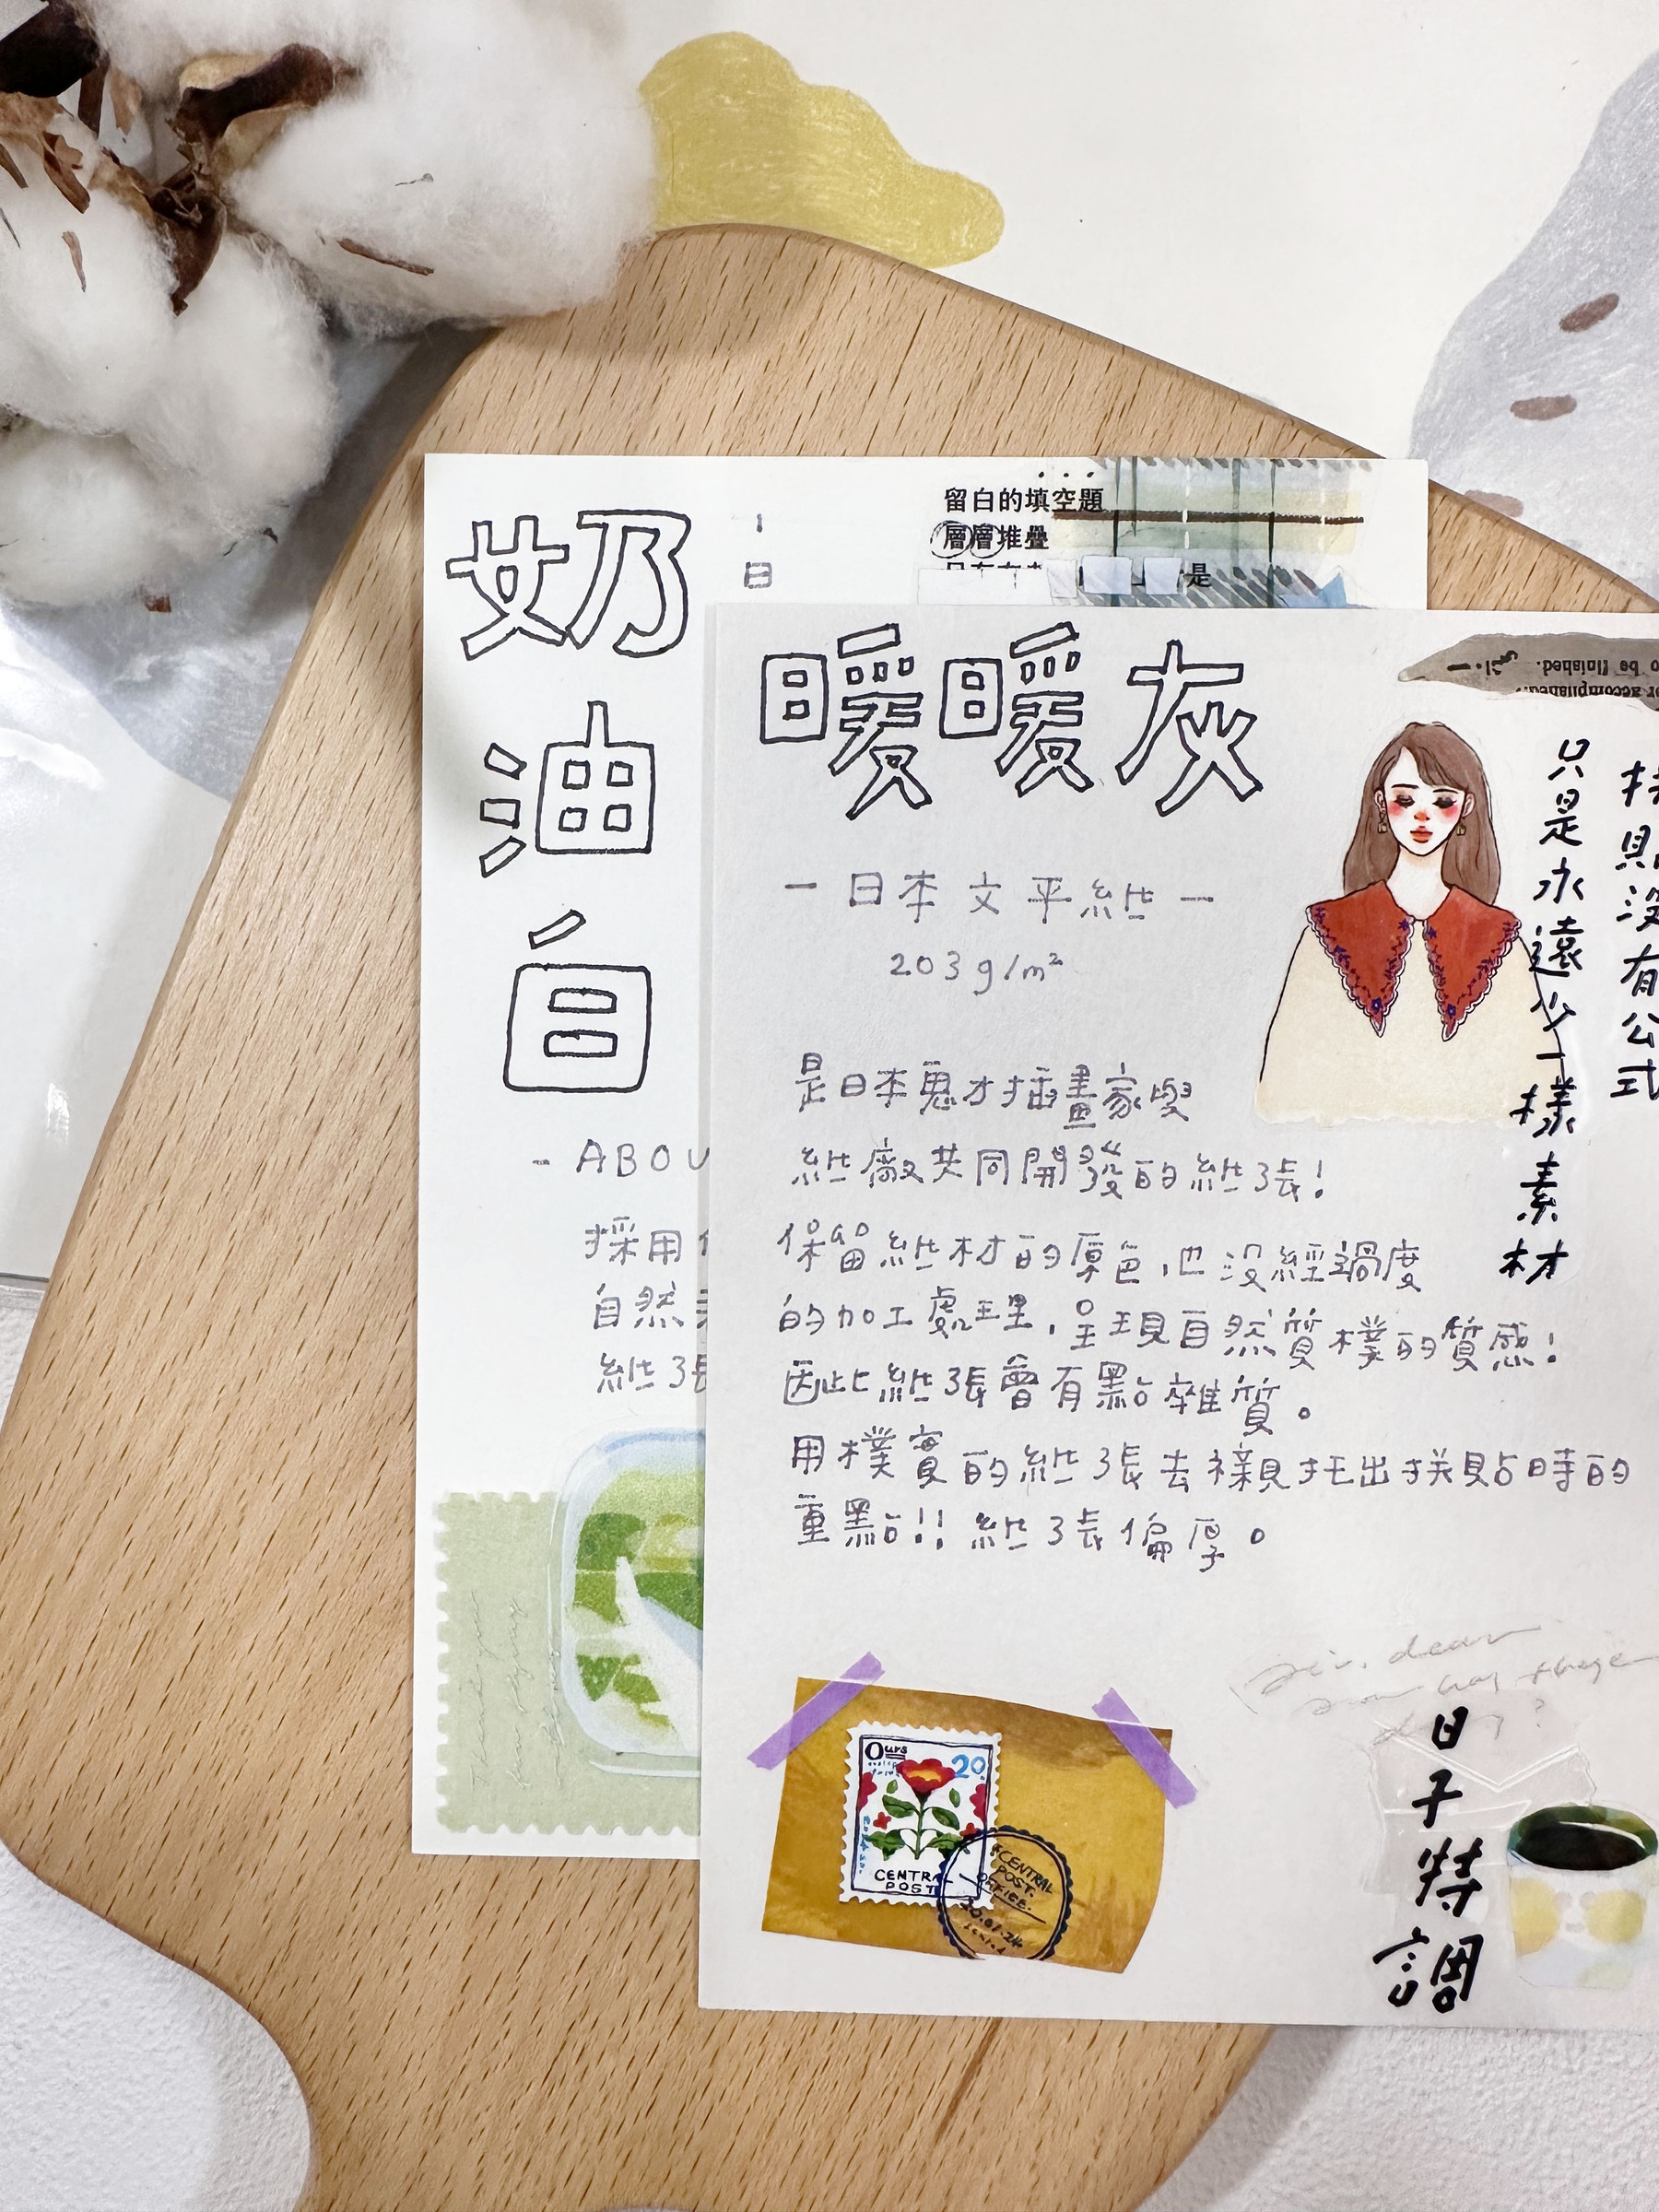 奶油白
留白的填空題
層層堆疊
是
- ABOU
採用
自然
紙張
暖暖灰
－日本文平紙－
203g/m²
是日本鬼才插畫家與
紙廠共同開發的紙張!
保留紙材的厚色,也沒經過度
的加工處理,呈現自然質樸的質感!
因此紙張會有點雜質。
用樸實的紙張去襯托出拼貼時的
重點!! 紙張偏厚。
to be finished.
or accomplished.
拼貼沒有公式
只是永遠少一樣素材
Ours
20
CENTRAL
POST
CENTRAL
POST.
OFFICE.
dear
日子特調